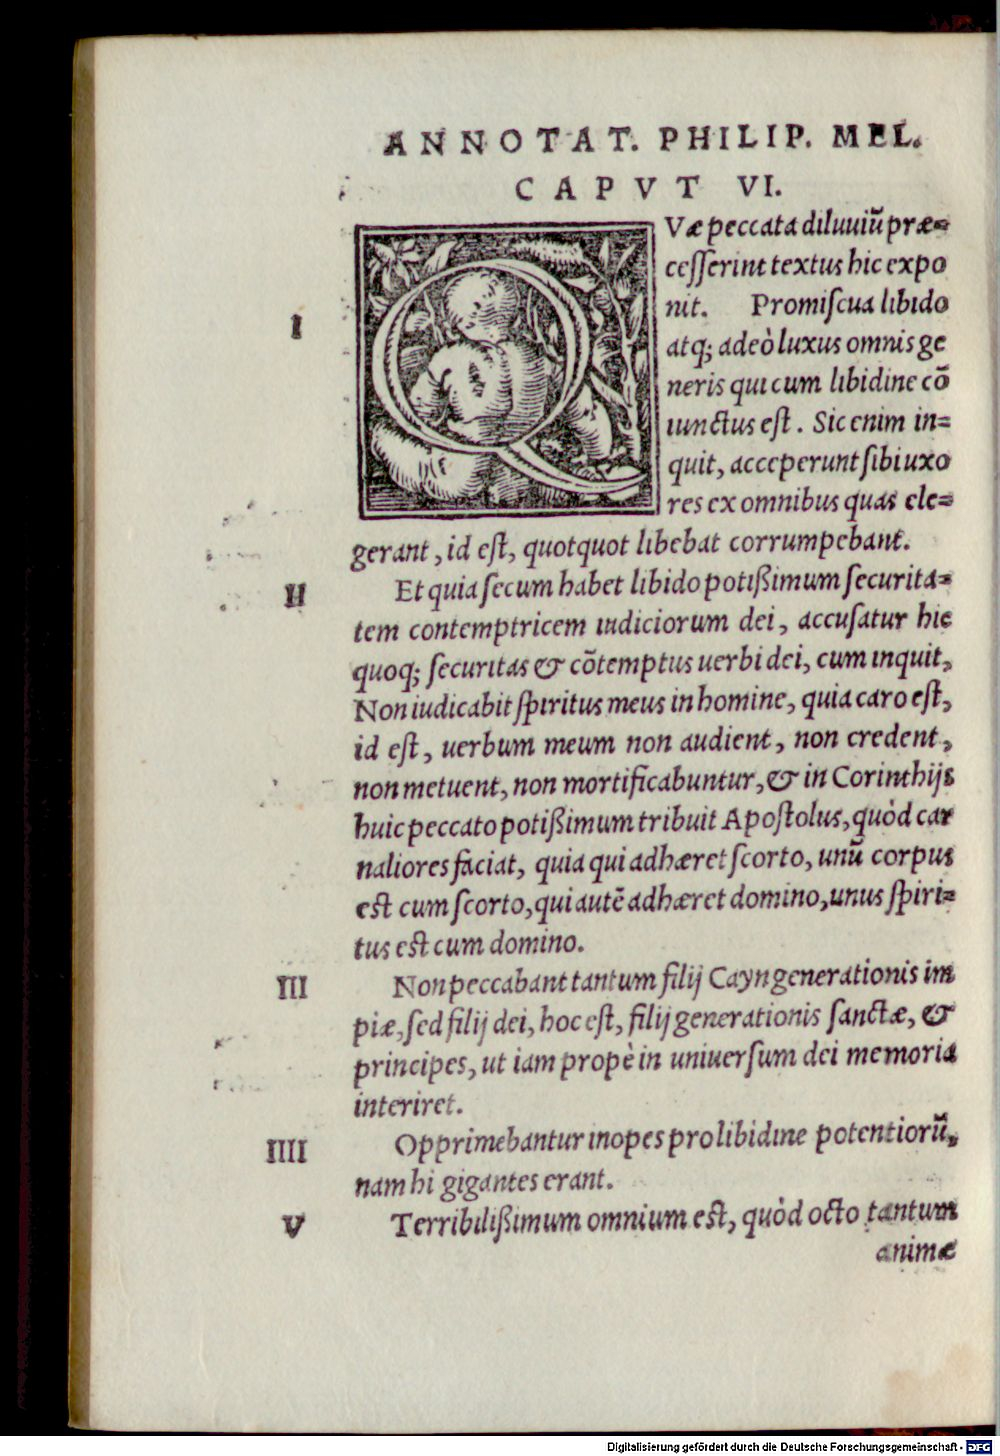 ANNOTAT. PHILIP. MEL.
CAPVT VI.
QVæ peccata diluuiũ præ=
cesserint textus hic expo
I
nit. Promiscua libido
atq; adeò luxus omnis ge
neris qui cum libidine cõ
iunctus est. Sic enim in=
quit, acceperunt sibi uxo
res ex omnibus quas ele=
gerant, id est, quotquot libebat corrumpebant.
II
Et quia secum habet libido potißimum securita=
tem contemptricem iudiciorum dei, accusatur hic
quoq; securitas & cõtemptus uerbi dei, cum inquit,
Non iudicabit spiritus meus in homine, quia caro est,
id est, uerbum meum non audient, non credent,
non metuent, non mortificabuntur, & in Corinthijs
huic peccato potißimum tribuit Apostolus, quòd car
naliores faciat, quia qui adhæret scorto, unũ corpus
est cum scorto, qui autẽ adhæret domino, unus spiri=
tus est cum domino.
III
Non peccabant tantum filij Cayn generationis im
piæ, sed filij dei, hoc est, filij generationis sanctæ, &
principes, ut iam propè in uniuersum dei memoria
interiret.
IIII
Opprimebantur inopes pro libidine potentiorũ,
nam hi gigantes erant.
V
Terribilißimum omnium est, quòd octo tantum
animæ
Digitalisierung gefördert durch die Deutsche Forschungsgemeinschaft - DFG